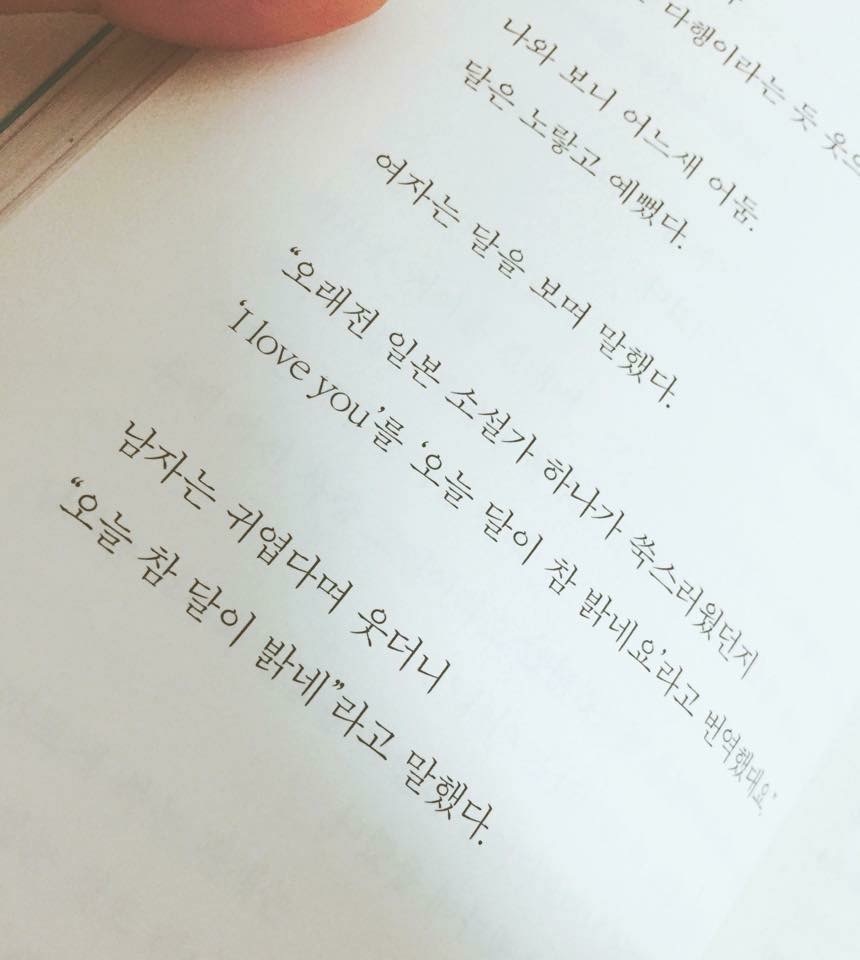 다행이라는 듯 웃으
나와 보니 어느새 어둠.
달은 노랗고 예뻤다.
여자는 달을 보며 말했다.
“오래전 일본 소설가 하나가 쑥스러웠던지
‘I love you’를 ‘오늘 달이 참 밝네요’라고 번역했대요.”
남자는 귀엽다며 웃더니
“오늘 참 달이 밝네”라고 말했다.